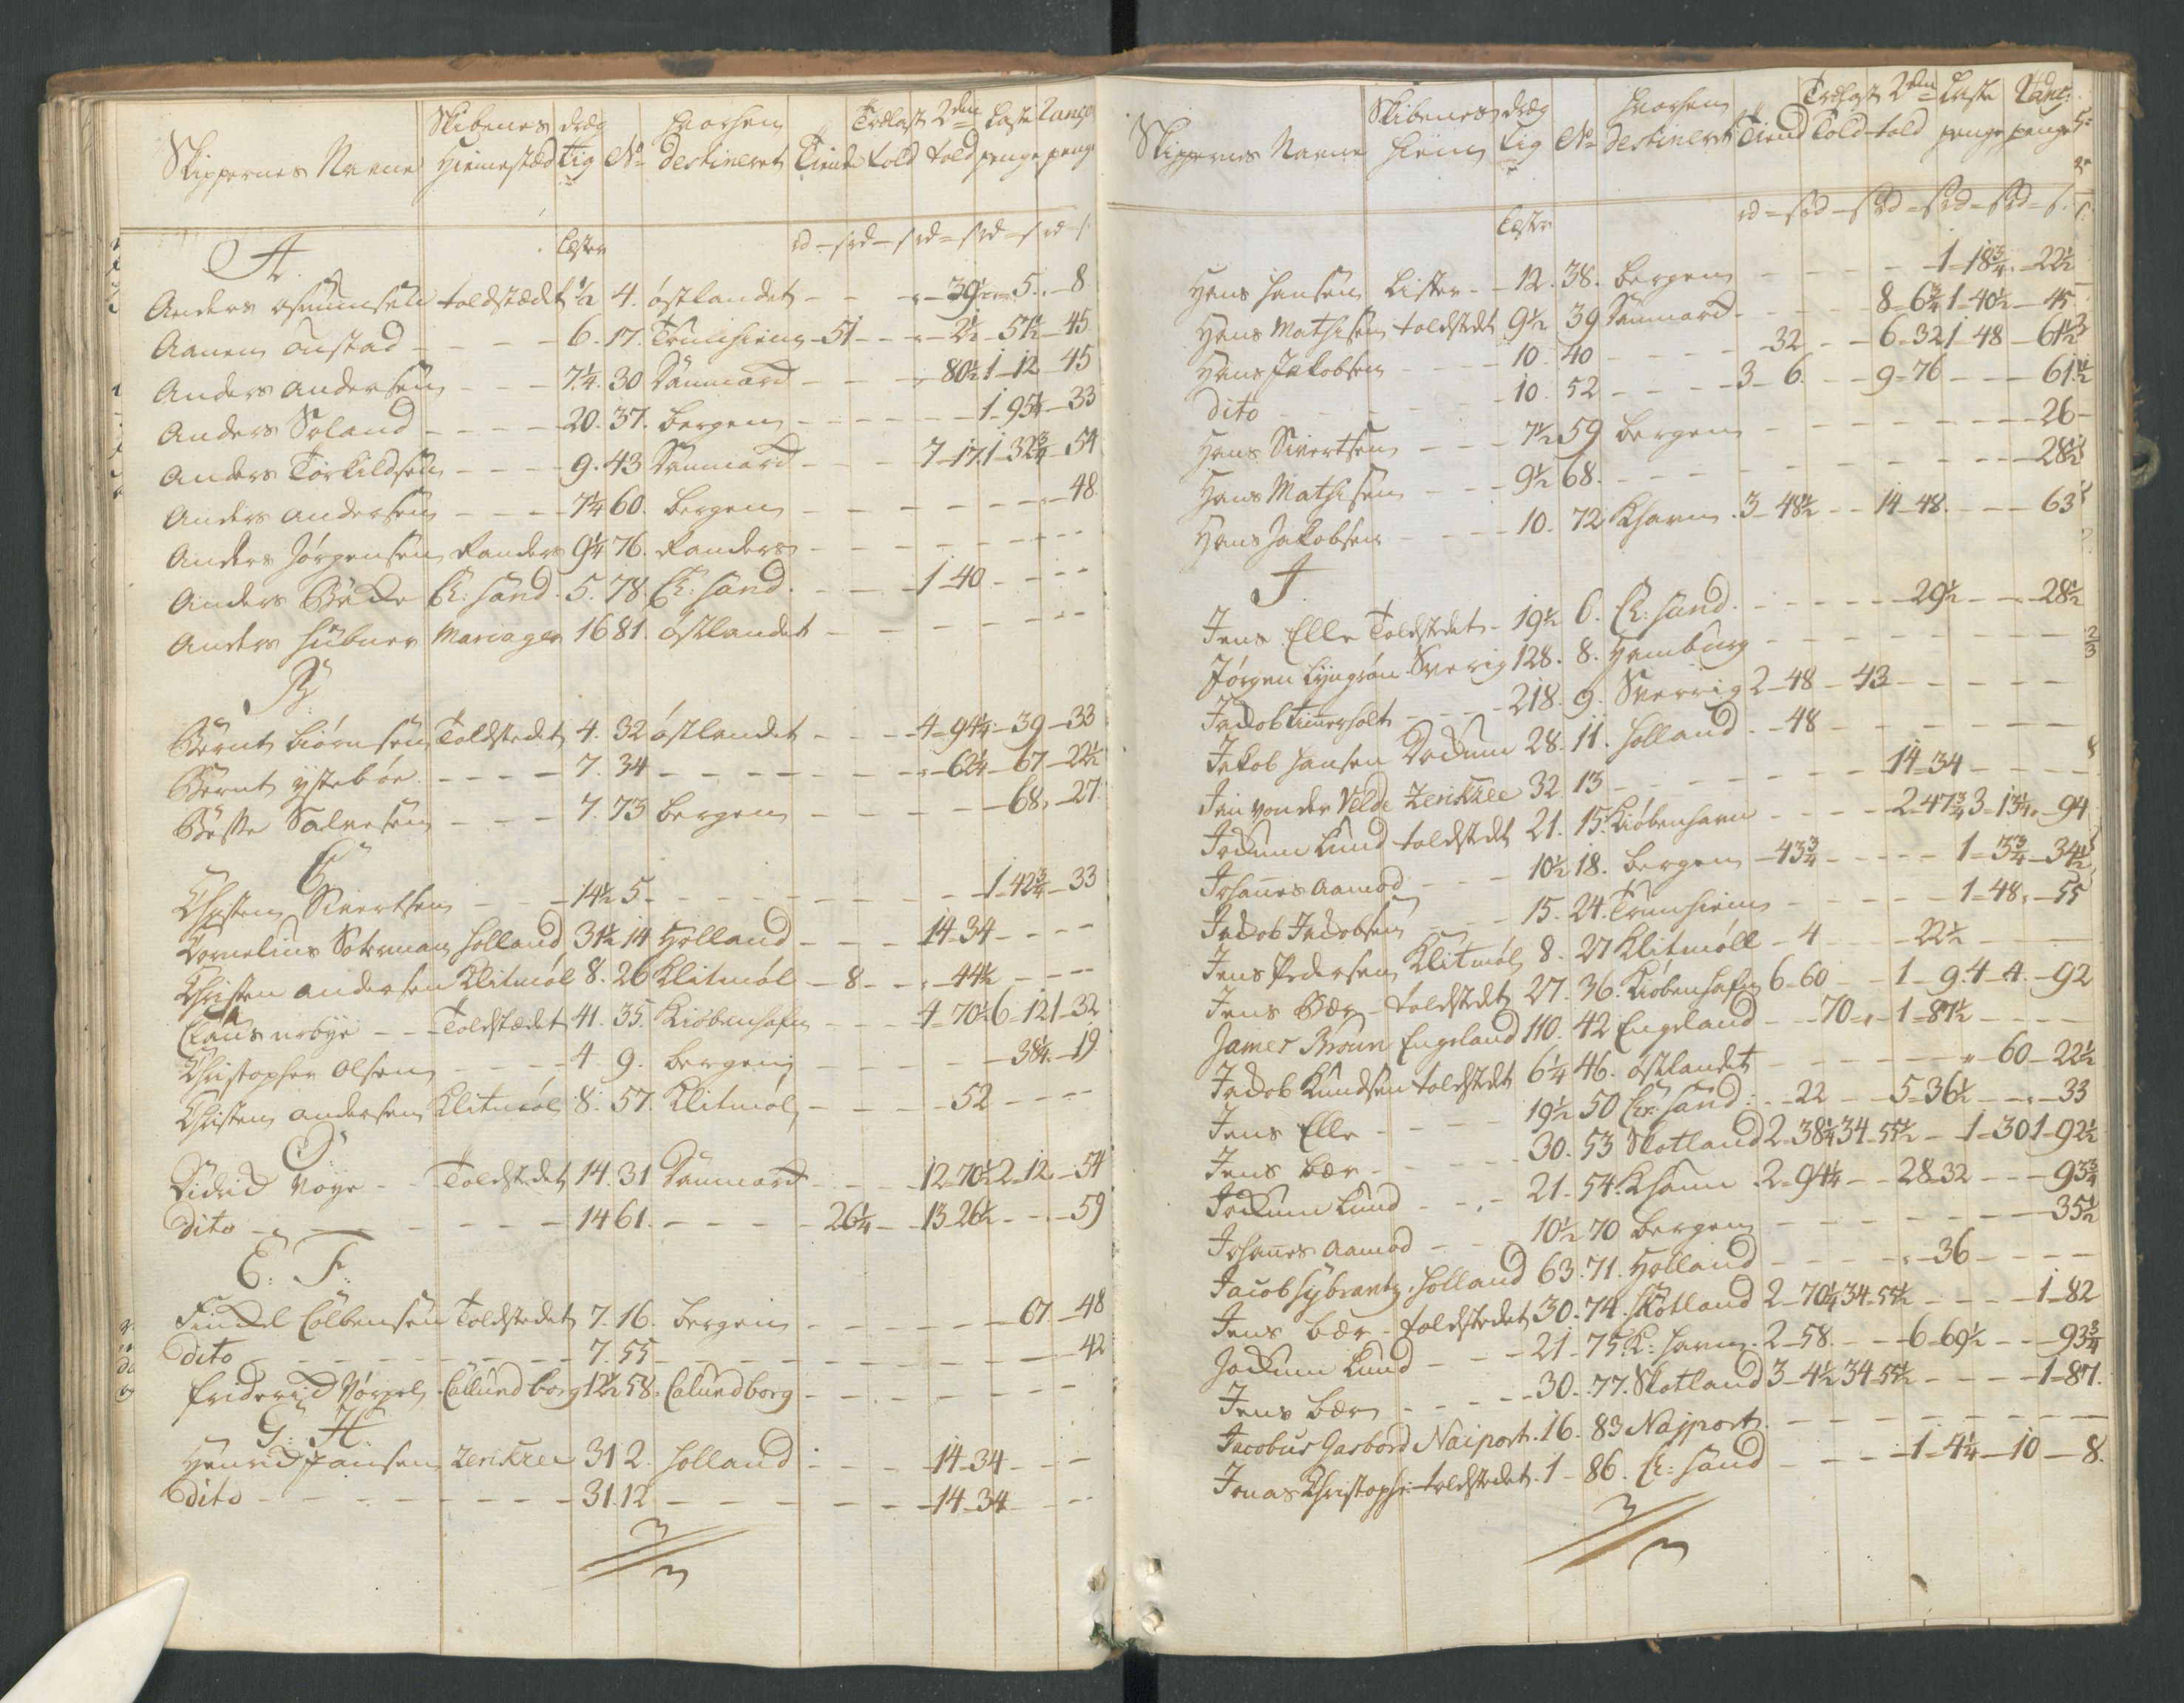 Skippernes Navne Skibenes Hiemestæd dræg tig No hvorhen destineret Tiende Trælast told 2den told Laste penge Lange penge
Læster rd s rd s rd s rd s rd s
A
Anders toldstædet 1/2 4. østlandet - - - 39 1/2 - 5. - 8
Aanen onstad - - 6. 17. Trunhiem - 51 - - - 2 1/2 - 51 1/2 - 45
Anders andersen - - - 7 1/4. 30 Danmarck - - - 80 1/2 1 - 12 - 45
Anders Soland - - - 20. 37. bergen - - - 1 - 95 1/4 - 33
Anders Torkildsen - - - 9. 43 Danmarck - - 7 - 17 1 - 32 3/4 - 54
Anders andersen - - - 7 1/4 60. bergen - - - 48
Anders Jørgensen Randers 9 1/4 76. Randers - - -
Anders Bække Chr: sand. 5. 78. Chr: sand. - - 1 - 40 - - -
Anders Hübner Mariager 16 81. østlandet - - -
B
Bernt biørnsen Toldstedet 4. 32 østlandet - - - 4 - 94 1/4 - 39 - 33
Bernt ystebøe - - - 7. 34 - - - 62 1/4 - 67 - 22 1/2
Salvesen - - - 7. 73 bergen - - - 68. - 27
C
Christen Sivertsen - - - 14 1/2 5. - - - 1 - 42 3/4 - 33
Cornelius Soterman Holland 31 1/2 14 Holland - - - 14 - 34 - - -
Christen andersen Klitmøl 8. 26 Klitmøl - 8 - - - 44 1/2 - - -
Claus nøbye - - Toldstædet 41. 35. Kiøbenhafn - - - 4 - 70 1/2 6 - 12 1 - 32
Christopher olsen - - - 4 9. bergen - - - 38 1/4 - 19
Christen andersen Klitmøl 8. 57. Klitmøl - - - 52 - - -
D
Didrick Voye - - Toldstedet 14. 31 Danmarck - - 12 - 70 1/2 2 - 12. - 54
Dito - - - 14 61. - - - 26 1/4 - - 13 - 26 1/2 - - - 59
E: F:
Findel Colbensen Toldstedet 7. 16. bergen - - - 67 - 48
Dito - - - 7. 55 - - - 42
Friderick Nørgel Callundborg 12 1/2 58. Calundborg - - -
G: H:
Henrick Jansen Zerikzee 31 2. Holland - - - 14 - 34 - - -
Dito - - - 31. 12 - - - 14 - 34 - - -
Skippernes Navne Skibenes Hiem dræg tig No hvorhen destineret Tiend Trælast Told 2den told Laste penge Lant: penge
Læster rd s rd s rd s rd s rd s
Hans Hansen Lister - - 12. 38. bergen - - - 1 - 18 3/4. - 22 1/2
Hans Mathisen toldstedet 9 1/2 39 Danmarck - - - 8 - 6 3/4 1 - 40 1/2 - 45
Hans Jakobsen - - - 10. 40 - - - 32 - - 6 - 32 1 - 48 - 61 1/2
Dito - - - 10. 52 - - - 3 - 6 - - 9 - 76 - - - 61 1/2
Hans Sivertsen - - - 7 1/2 59 bergen - - - 26 -
Hans Mathisen - - - 9 1/2 68. - - - 28 1/2
Hans Jakobsen - - - 10. 72 Khavn. 3 - 48 1/2 - - 14 - 48. - - - 63
J
Jens Elle Toldstedet - 19 1/2 6. Chr: sand. - - - 29 1/2 - - - 28 1/2
Jørgen Lyngrøn Sverig 128. 8. Hamburg - - -
Jacob Timerholt - - - 218. 9. Sverrig 2 - 48 - 43 - - -
Jakob Hansen Dockum 28. 11. Holland. - 48 - - -
Jan von der Velde Zerikzee 32. 13 - - - 14 - 34 - - -
Jockum Lund toldstedet 21. 15. Kiøbenhavn - - - 2 - 47 3/4 3 - 13 1/4. - 94
Johanes Aamod - - - 10 1/2 18. bergen - 43 3/4 - - - 1 - 3 3/4 - 34 1/2
Jacob Jacobsen - - - 15. 24. Trunhiem - - - 1 - 48. - 55
Jens Pedersen Klitmøl 8. 27 Klitmøll - 4 - - - 22 1/2 - - -
Jens Bær - toldstedet 27. 36. Kiøbenhafn 6 - 60 - - 1 - 9. 4 - 4. - 92
James Broun Engeland 110. 42 Engeland - - 70 - - 1 - 87 1/2 - - -
Jacob Knudsen toldstedet 6 1/4 46. østlandet - - - 60 - 22 1/2
Jens Elle - - - 19 1/2 50 Chr: sand: - - 22 - - 5 - 36 1/2 - - - 33
Jens bær - - - 30. 53 Skotland 2 - 38 1/4 34 - 55 1/2 - 1 - 30 1 - 92 1/2
Jockum Lund - - - 21. 54. Khavn. 2 - 94 1/4 - - 28 - 32 - - - 93 3/4
Johanes Aamod - - - 10 1/2 70 bergen - - - 35 1/2
Jacob Sybrantz. Holland 63. 71. Holland - - - 36 - - -
Jens bær - toldstedet 30. 74. Skotland 2 - 70 1/4 34 - 55 1/2 - - - 1 - 82
Jockum Lund - - - 21. 75 K: havn. 2 - 58. - - 6 - 69 1/2 - - - 93 3/4
Jens bær - - - 30. 77. Skotland 3 - 4 1/2 34 - 55 1/2 - - - 1 - 87.
Jacobus Garbord Naiport. 16. 83 Najport. - - -
Jonas Christoph: toldstedet. 1 - 86. Chr: sand - - - 1 - 4 1/4 - 10 - 8.